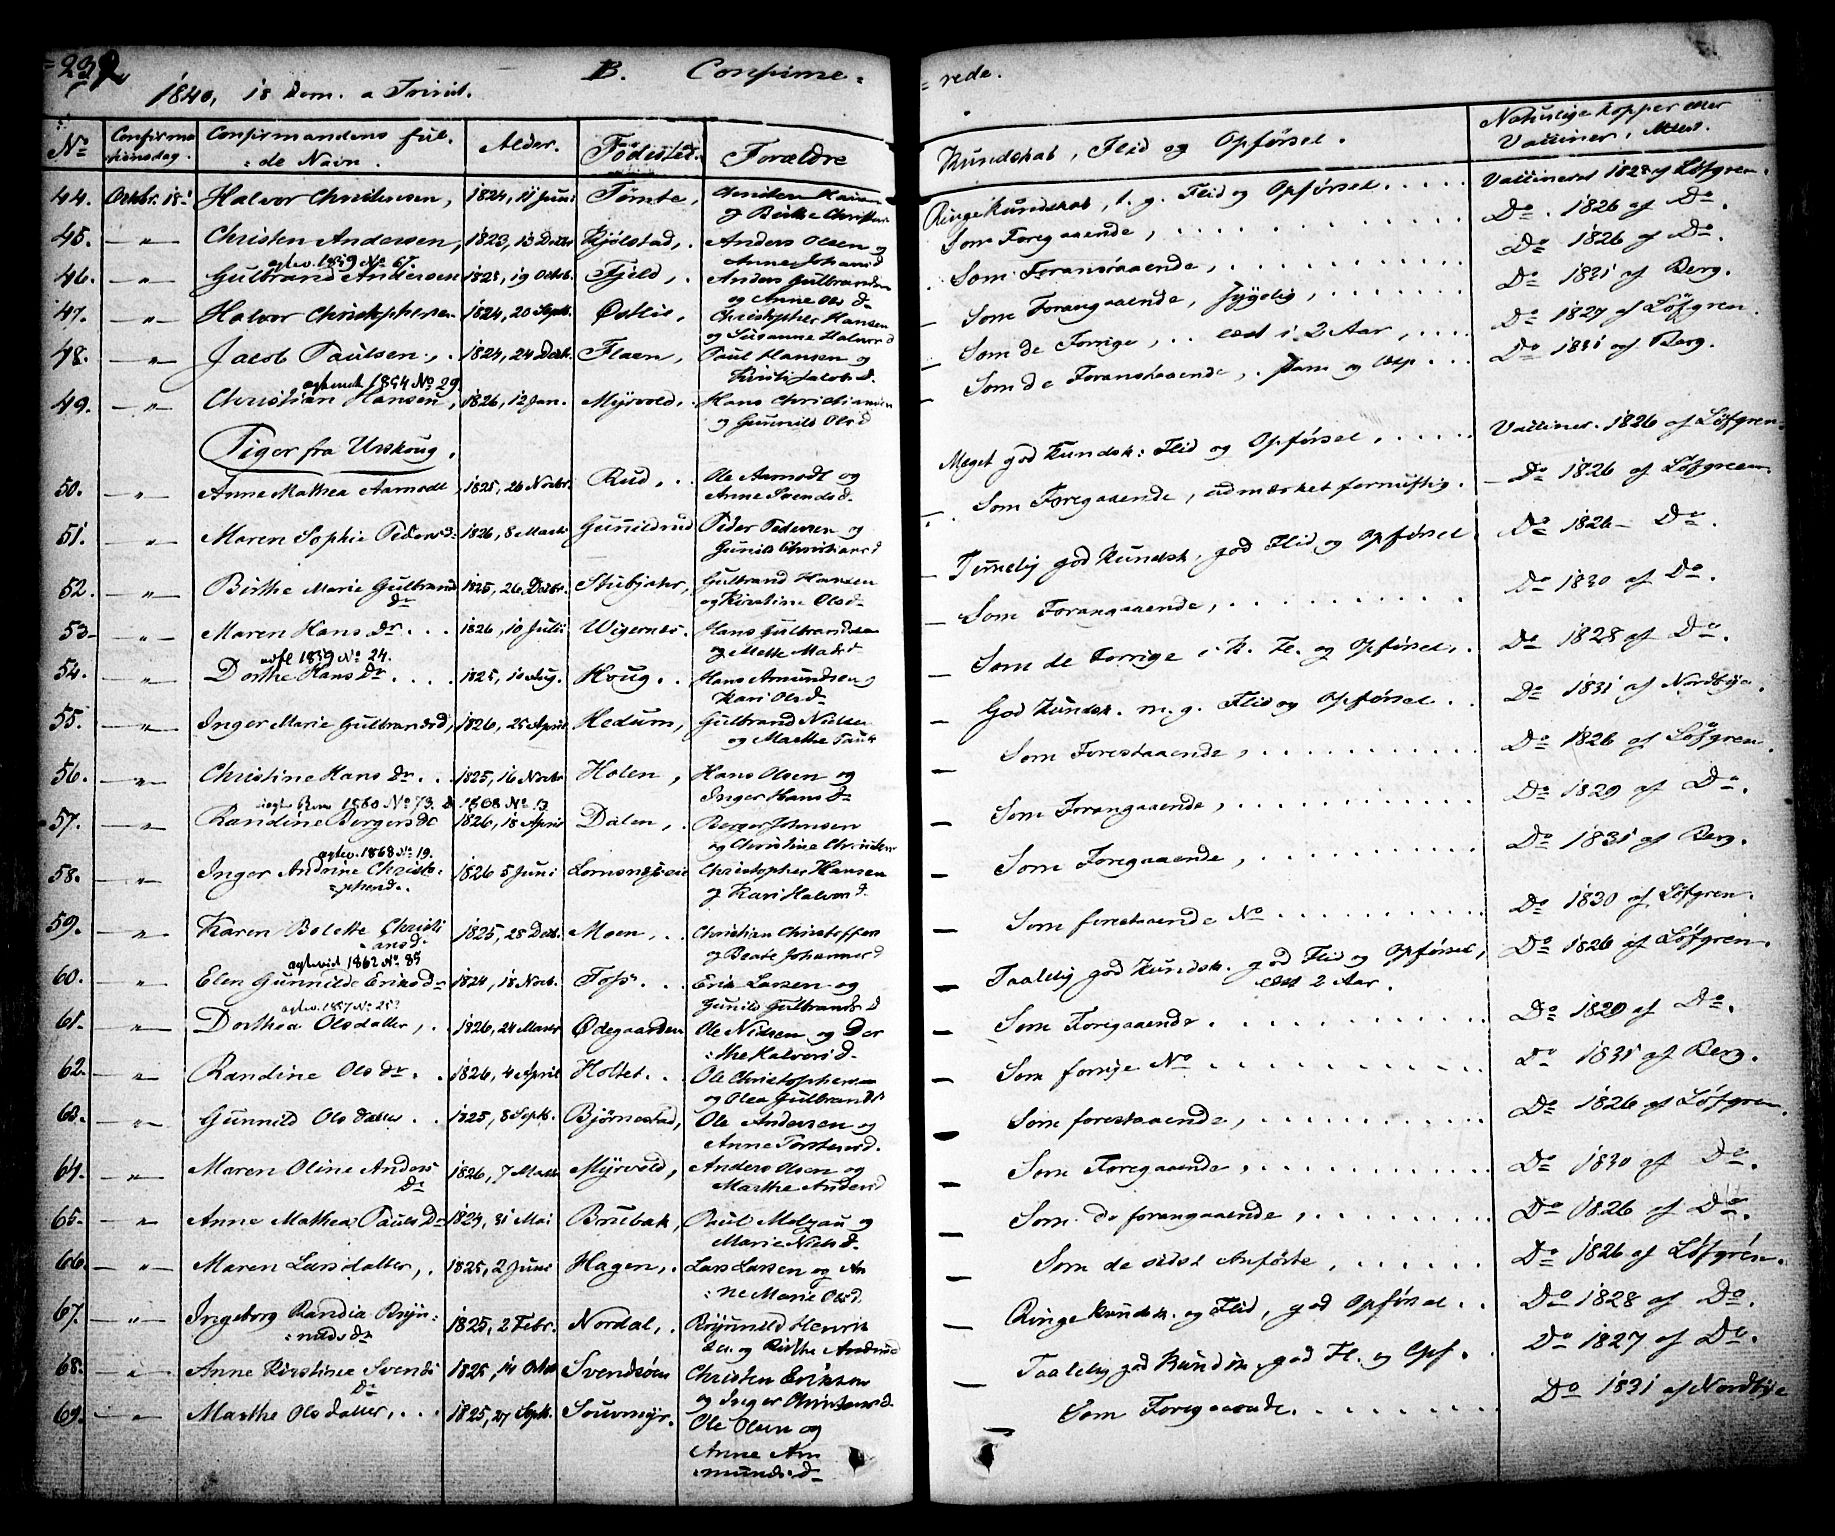 232
B. Confirme-
= rede.
1840, 18 Dom. a Trinit.
No Confirmationsdag. Confirmandens fulde Navn. Alder. Fødested. Forældre Kundskab, Flid og Opførsel. Naturlige Kopper eller Vacciner. Attest.
44. Octbr. 18de Halvor Christensen, 1824, 11 Juni Tømte, og Birthe Ringe Kundskab, t. g. Flid og Opførsel..... Vaccineret 1828 af Løfgren.
45. — " — Christen Andersen, 1823, 13 Kjølstad, Anders Olsen og Anne Johansd Som Foregaaende, ........ Do. 1826 af Do.
agtev. 1859 No 67.
46. — " — Gulbrand Andersen 1825, 19 Octb. Fjeld, Anders Gulbrandsen og Anne Ols D. Som Foranstaaende, ...... Do 1826 af Do.
47. — " — Halvor Christophersen 1824, 20 Sept. Østlie, Christopher Hansen og Susanne Halvord Som Forangaaende, ...... Do 1831 af Berg.
48. " Jacob Paulsen, 1824, 24 Flaen, Paul Hansen og Kirsti Jacobs D. Som de Forrige, .. læst i 2 Aar, ... Do 1827 af Løfgren.
agtevied 1854 No 29.
49. — " — Christian Hansen, 1826, 12 Jan. Myrvold, Hans Christiansen og Gunnild Ols D Som de Foranstaaende, ... Do 1831 af Berg.
Piger fra Urskoug.
50. — " — Anne Mathea Aamodt, 1825, 26 Novbr. Rud, .. Ole Aamodt og Anne Svends D. Meget god Kundsk: Flid og Opførsel, ..... Vacciner. 1826 af Løfgren.
51. — " — Maren Sophie Pedersd: 1826, 8 Marts Gunildrud Peder Pedersen og Gunild Christians D Som Foregaaende, udmærket fornuftig. — Do 1826 af Løfgreen
52. — " — Birthe Marie Gulbrand Dr 1825, 26 Decbr. Stubjahr, Gulbrand Hansen og Kirstine Olsd. Temmelig god Kundsk, god Flid og Opførsel. Do 1826 — Do.
53 — " — Maren Hans Dr. ... 1826, 10 Julii Wigernes. Hans Gulbrandsen og Mette Madsd Som Forangaaende, ......... Do 1830 af Do.
1859 No 24.
54. — " — Dorthe Hans Dr. .... 1825, Aug. Houg. .. Hans Amundsen og Kari Ols D. Som de Forrige i K. Fl. og Opførsel, .. Do 1828 af Do.
55. — " — Inger Marie Gulbrandsd, 1826, 25 April Hedum, Gulbrand Nielsen og Marthe God Kundsk. m. g. Flid og Opførsel .. Do 1831 af Nordbye.
56. — " — Christine Hans Dr. .. 1825, 16 Novbr Holen, Hans Olsen og Inger Hans D. Som Forestaaende, ......... Do 1826 af Løfgren.
1860 No 73. 1868 No 13
57. — " — Randine Bergersdr 1826, 18 April Dalen, . Berger Johnsen og Christine Som Forangaaende, ......... Do 1829 af Do.
agtev. 1868 No 19.
58. — " — Inger Andrine Christo-phersd. 1826 5 Juni Christopher Hansen og Kari Halvors D. Som Foregaaende, ......... Do 1831 af Berg.
59. — " — Karen Bolette Christi-ansd. 1825, 25 Moen, .. Christian Christoffers og Beate Johannes D Som forestaaende No .......... Do 1830 af Løfgren.
agtevied 1862 No 85
60. — " — Elen Gunnilde Eriksdr 1824, 18 Novb. Foss. .. Eric Larsen og Gunild Gulbrands D Taalelig god Kundsk. god Flid og Opførsel, læst 2 Aar. Do 1826 af Løfgren.
61. — " — Dorthea Olsdatter, . 1826, 24 Marts Ødegaarden Ole Nielsen og Dor-the Halvors D. Som Foregaaende .......... Do 1829 af Do.
62. — " — Randine Ols Dr. . 1826, 4 April Holtet. .. Ole Christophersen og Olea Gulbrands Som forrige No .......... Do 1831 af Berg.
63. — " — Gunnild Ols datter .. 1825, 8 Sept. Bjørnestad, Ole Andersen og Anne Torstensd. Som forestaaende, .......... Do 1826 af Løfgren.
64. — " — Maren Oline Anders Dr 1826, 7 Myrvold, Anders Olsen og Marthe Anders D Som Foregaaende, .......... Do 1830 af Do.
65. — " — Anne Mathea Pauls Dr 1824, 31 Mai Brubak, Paul og Marie Niels D. Som de forangaaende, ....... Do 1826 af Do.
66. — " — Maren Larsdatter, . 1825, 2 Juni Hagen, . Lars Larsen og An-ne Marie Olsd. Som de sidst Anførte, ...... Do 1826 af Løfgren.
67. — " — Ingeborg Randia Bryn-nildsdr 1825, 2 Febr. Nordal, . Brynnild Henrik-sen og Birthe Ringe Kundsk. og Flid, god Opførsel .. Do 1828 af Do.
68. — " — Anne Kirstine Svends Dr 1825, 14 Svendsöen Christen Eriksen og Inger Christensd. Taalelig god Kundsk, god Fl. og Opf. . Do 1827 af Do.
69. — " — Marthe Ols datter, ... 1825, 27 Sept. Souvmyr. Ole Olsen og Anne Am-mundsd. Som Foregaaende. ........ Do 1831 af Nordbye